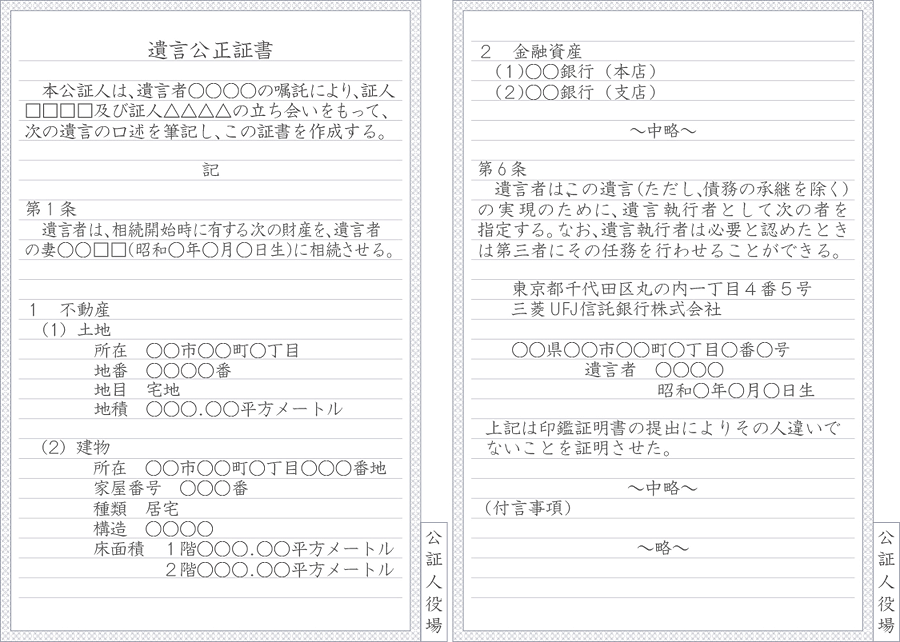 遺言公正証書
本公証人は、遺言者〇〇〇〇の嘱託により、証人
□□□□及び証人△△△△の立ち会いをもって、
次の遺言の口述を筆記し、この証書を作成する。
記
第1条
遺言者は、相続開始時に有する次の財産を、遺言者
の妻〇〇□□(昭和〇年〇月〇日生)に相続させる。
1 不動産
(1) 土地
所在 〇〇市〇〇町〇丁目
地番 〇〇〇〇番
地目 宅地
地積 〇〇〇.〇〇平方メートル
(2) 建物
所在 〇〇市〇〇町〇丁目〇〇〇番地
家屋番号 〇〇〇番
種類 居宅
構造 〇〇〇〇
床面積 1階〇〇〇.〇〇平方メートル
2階〇〇〇.〇〇平方メートル
公証人役場
2 金融資産
(1)〇〇銀行(本店)
(2)〇〇銀行(支店)
～中略～
第6条
遺言者は、この遺言(ただし、債務の承継を除く)
の実現のために、遺言執行者として次の者を
指定する。なお、遺言執行者は必要と認めたとき
は第三者にその任務を行わせることができる。
東京都千代田区丸の内一丁目4番5号
三菱UFJ信託銀行株式会社
〇〇県〇〇市〇〇町〇丁目〇番〇号
遺言者 〇〇〇〇
昭和〇年〇月〇日生
上記は印鑑証明書の提出によりその人違いで
ないことを証明させた。
～中略～
(付言事項)
～略～
公証人役場